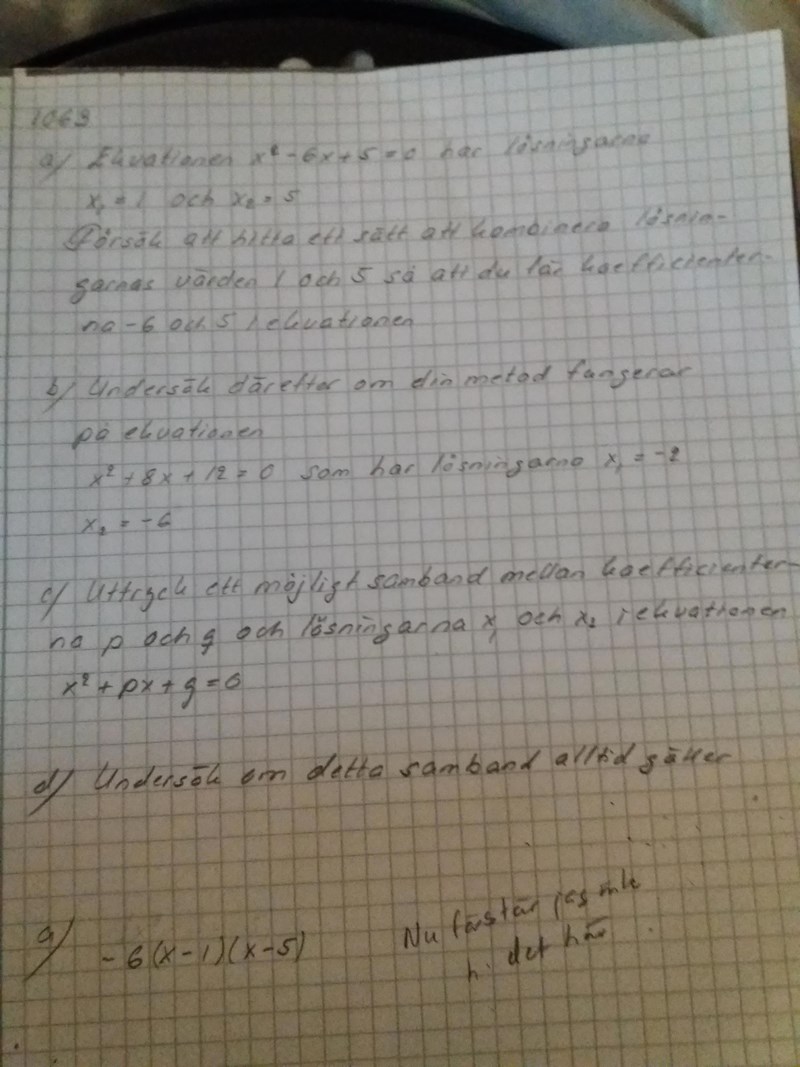 1069
a) Ekvationen x² - 6x + 5 = 0 har lösningarna
x₁ = 1 och x₂ = 5
Försök att hitta ett sätt att kombinera lösnin-
garnas värden 1 och 5 så att du får koefficienter-
na -6 och 5 i ekvationen
b) Undersök därefter om din metod fungerar
på ekvationen
x² + 8x + 12 = 0 som har lösningarna x₁ = -2
x₂ = -6
c) Uttryck ett möjligt samband mellan koefficienter-
na p och q och lösningarna x₁ och x₂ i ekvationen
x² + px + q = 0
d) Undersök om detta samband alltid gäller
a) -6(x-1)(x-5)
Nu förstår jag inte
det här